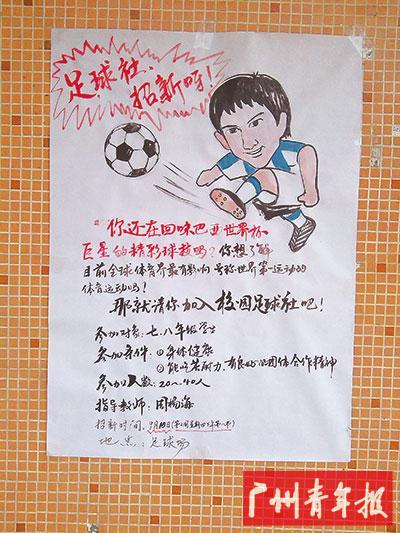 足球社，
招新呀！
你还在回味巴西世界杯
巨星的精彩球技吗？你想了解
目前全球体育界最有影响 号称世界第一运动的
体育运动吗？
那就请你加入校园足球社吧！
参加对象：七、八年级学生
参加条件：①身体健康
②能吃苦耐力，有良好的团体合作精神
参加人数：20～40人
指导教师：周杨海
招新时间：9月
地 点：足球场
广州青年报